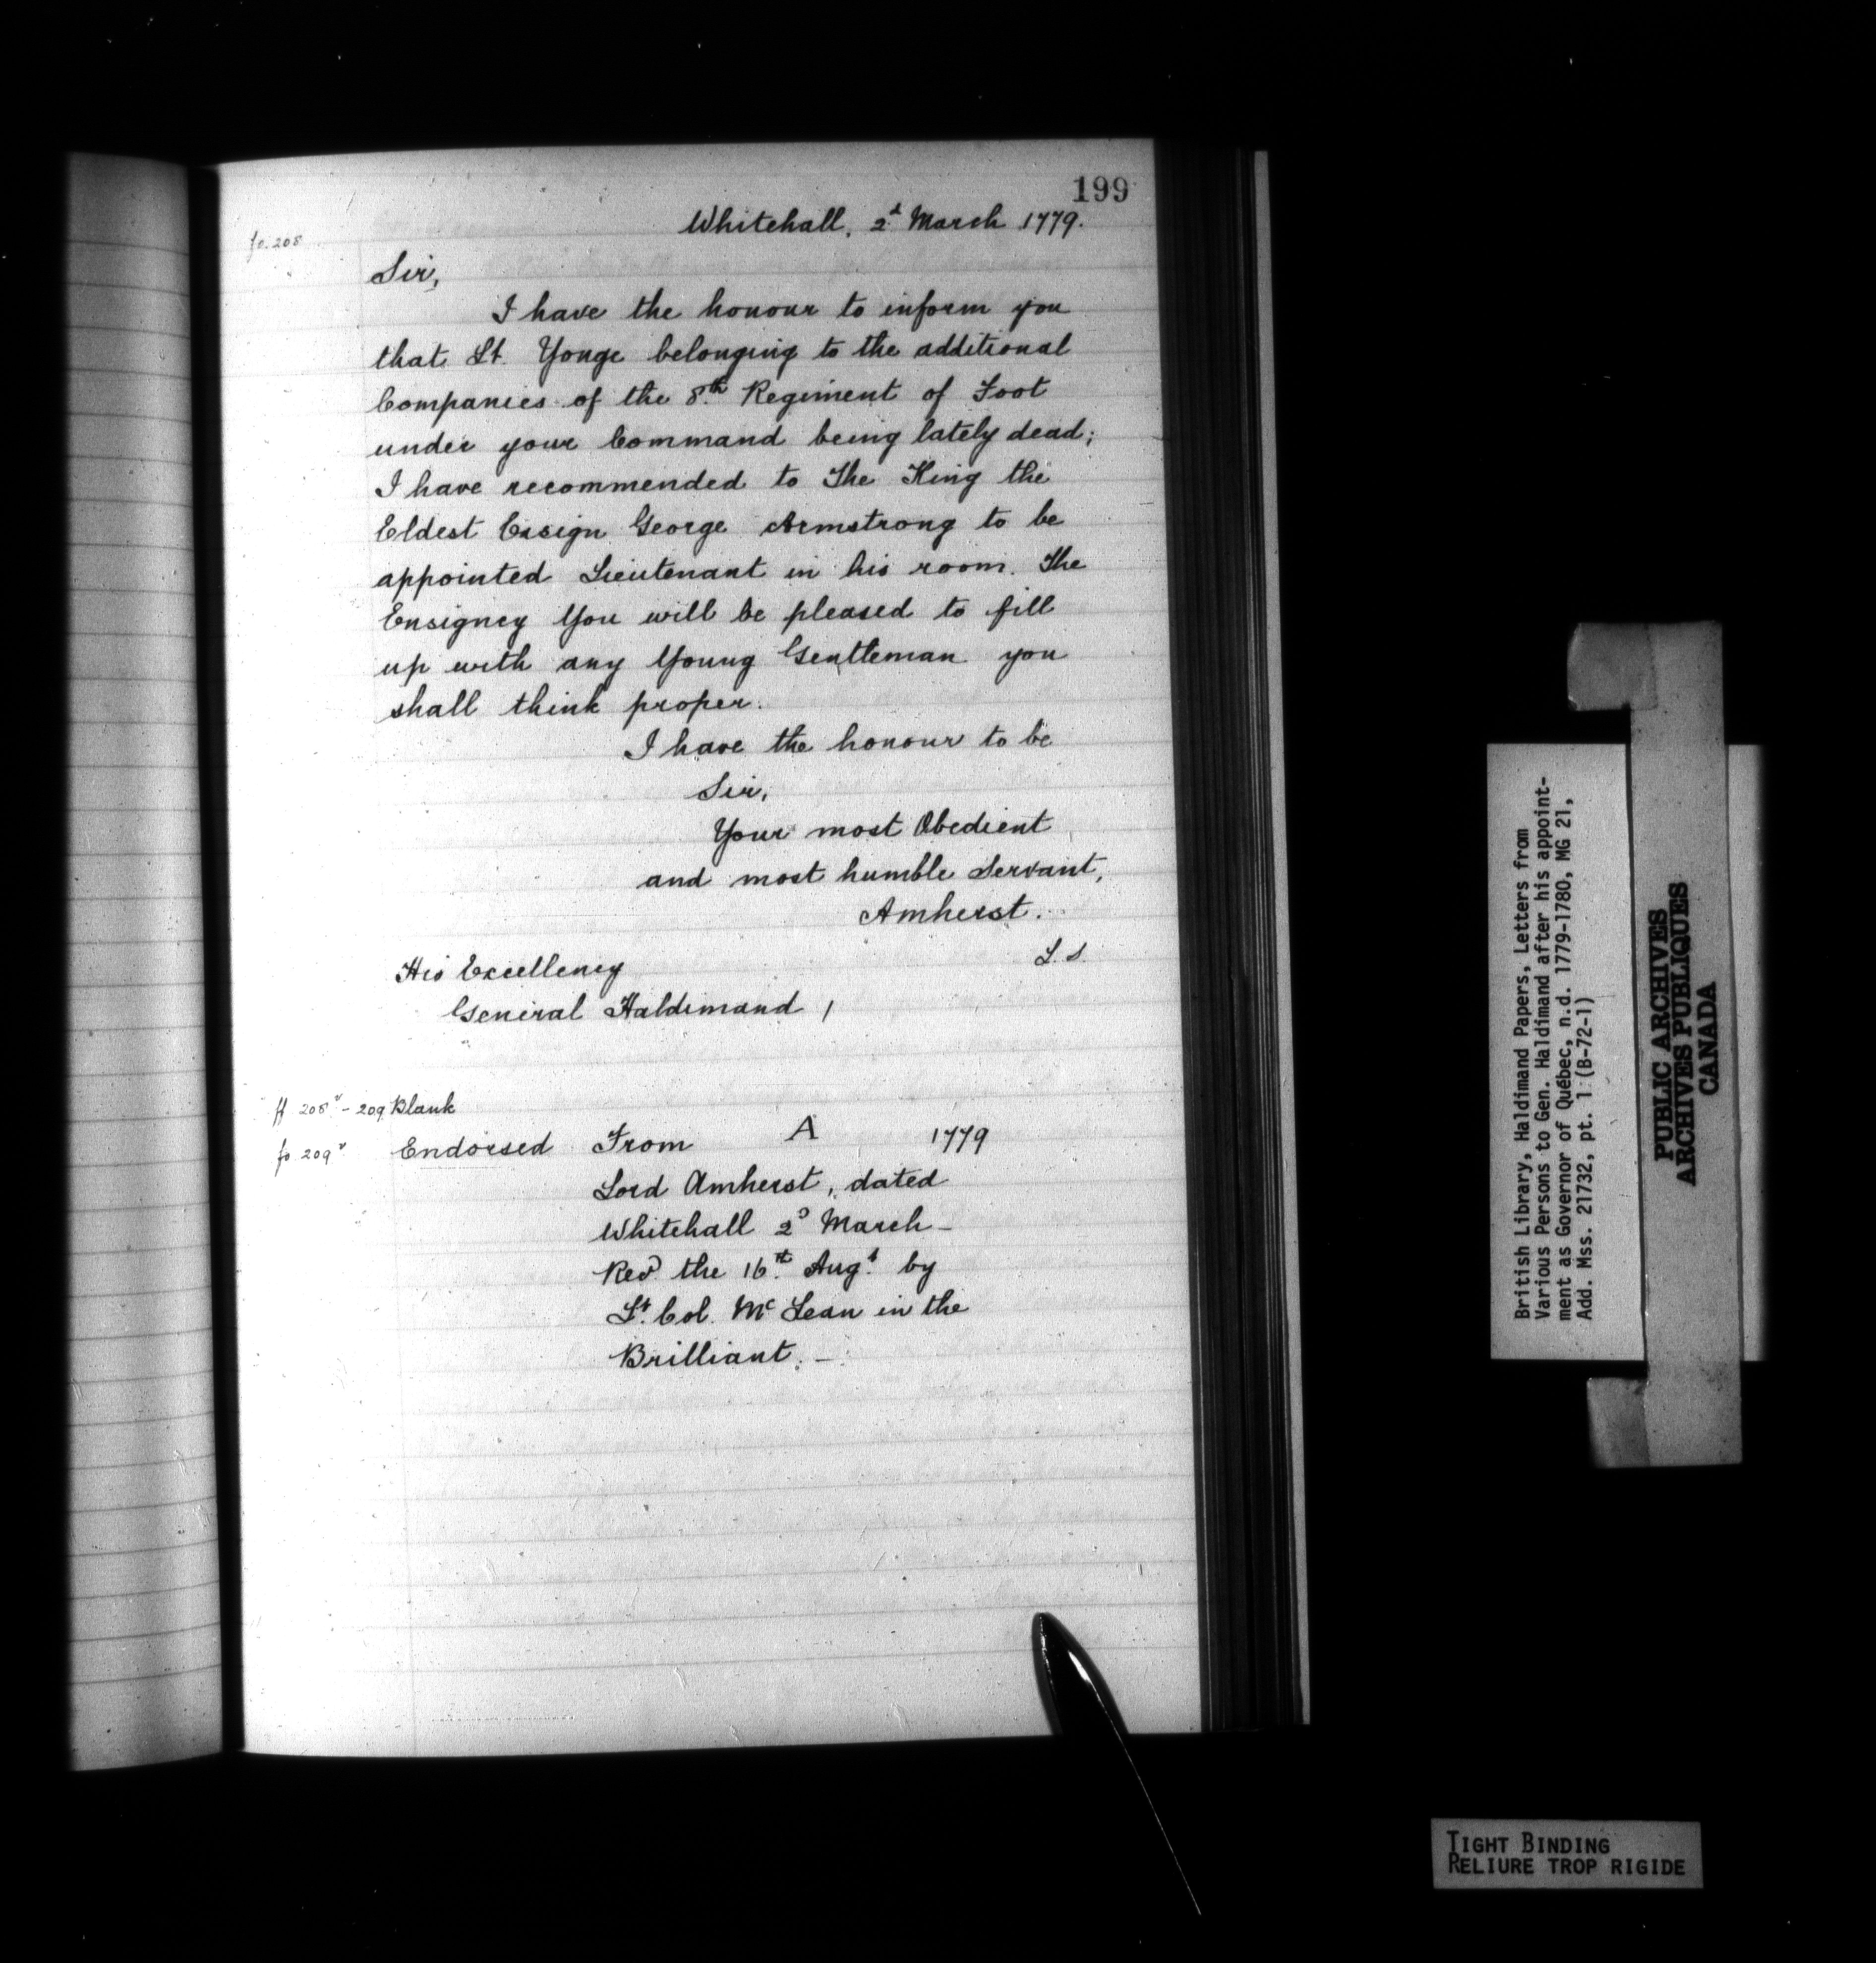 199
Whitehall, 2d March 1779.
fo. 208
Sir,
I have the honour to inform you
that Lt. Yonge belonging to the additional
Companies of the 8th Regiment of Foot
under your Command being lately dead;
I have recommended to The King the
Eldest Ensign George Armstrong to be
appointed Lieutenant in his room. The
Ensigncy You will be pleased to fill
up with any Young Gentleman you
shall think proper.
I have the honour to be
Sir,
Your most Obedient
and most humble Servant,
Amherst.
L.S.
His Excellency
General Haldimand
ff 208v - 209 Blank
fo 209v Endorsed From A 1779
Lord Amherst, dated
Whitehall 2d March —
Red the 16th Augt by
Lt. Col. Mc Lean in the
Brilliant. —
British Library, Haldimand Papers, Letters from
Various Persons to Gen. Haldimand after his appoint-
ment as Governor of Québec, n.d. 1779-1780, MG 21,
Add. Mss. 21732, pt. 1 (B-72-1)
PUBLIC ARCHIVES
ARCHIVES PUBLIQUES
CANADA
TIGHT BINDING
RELIURE TROP RIGIDE